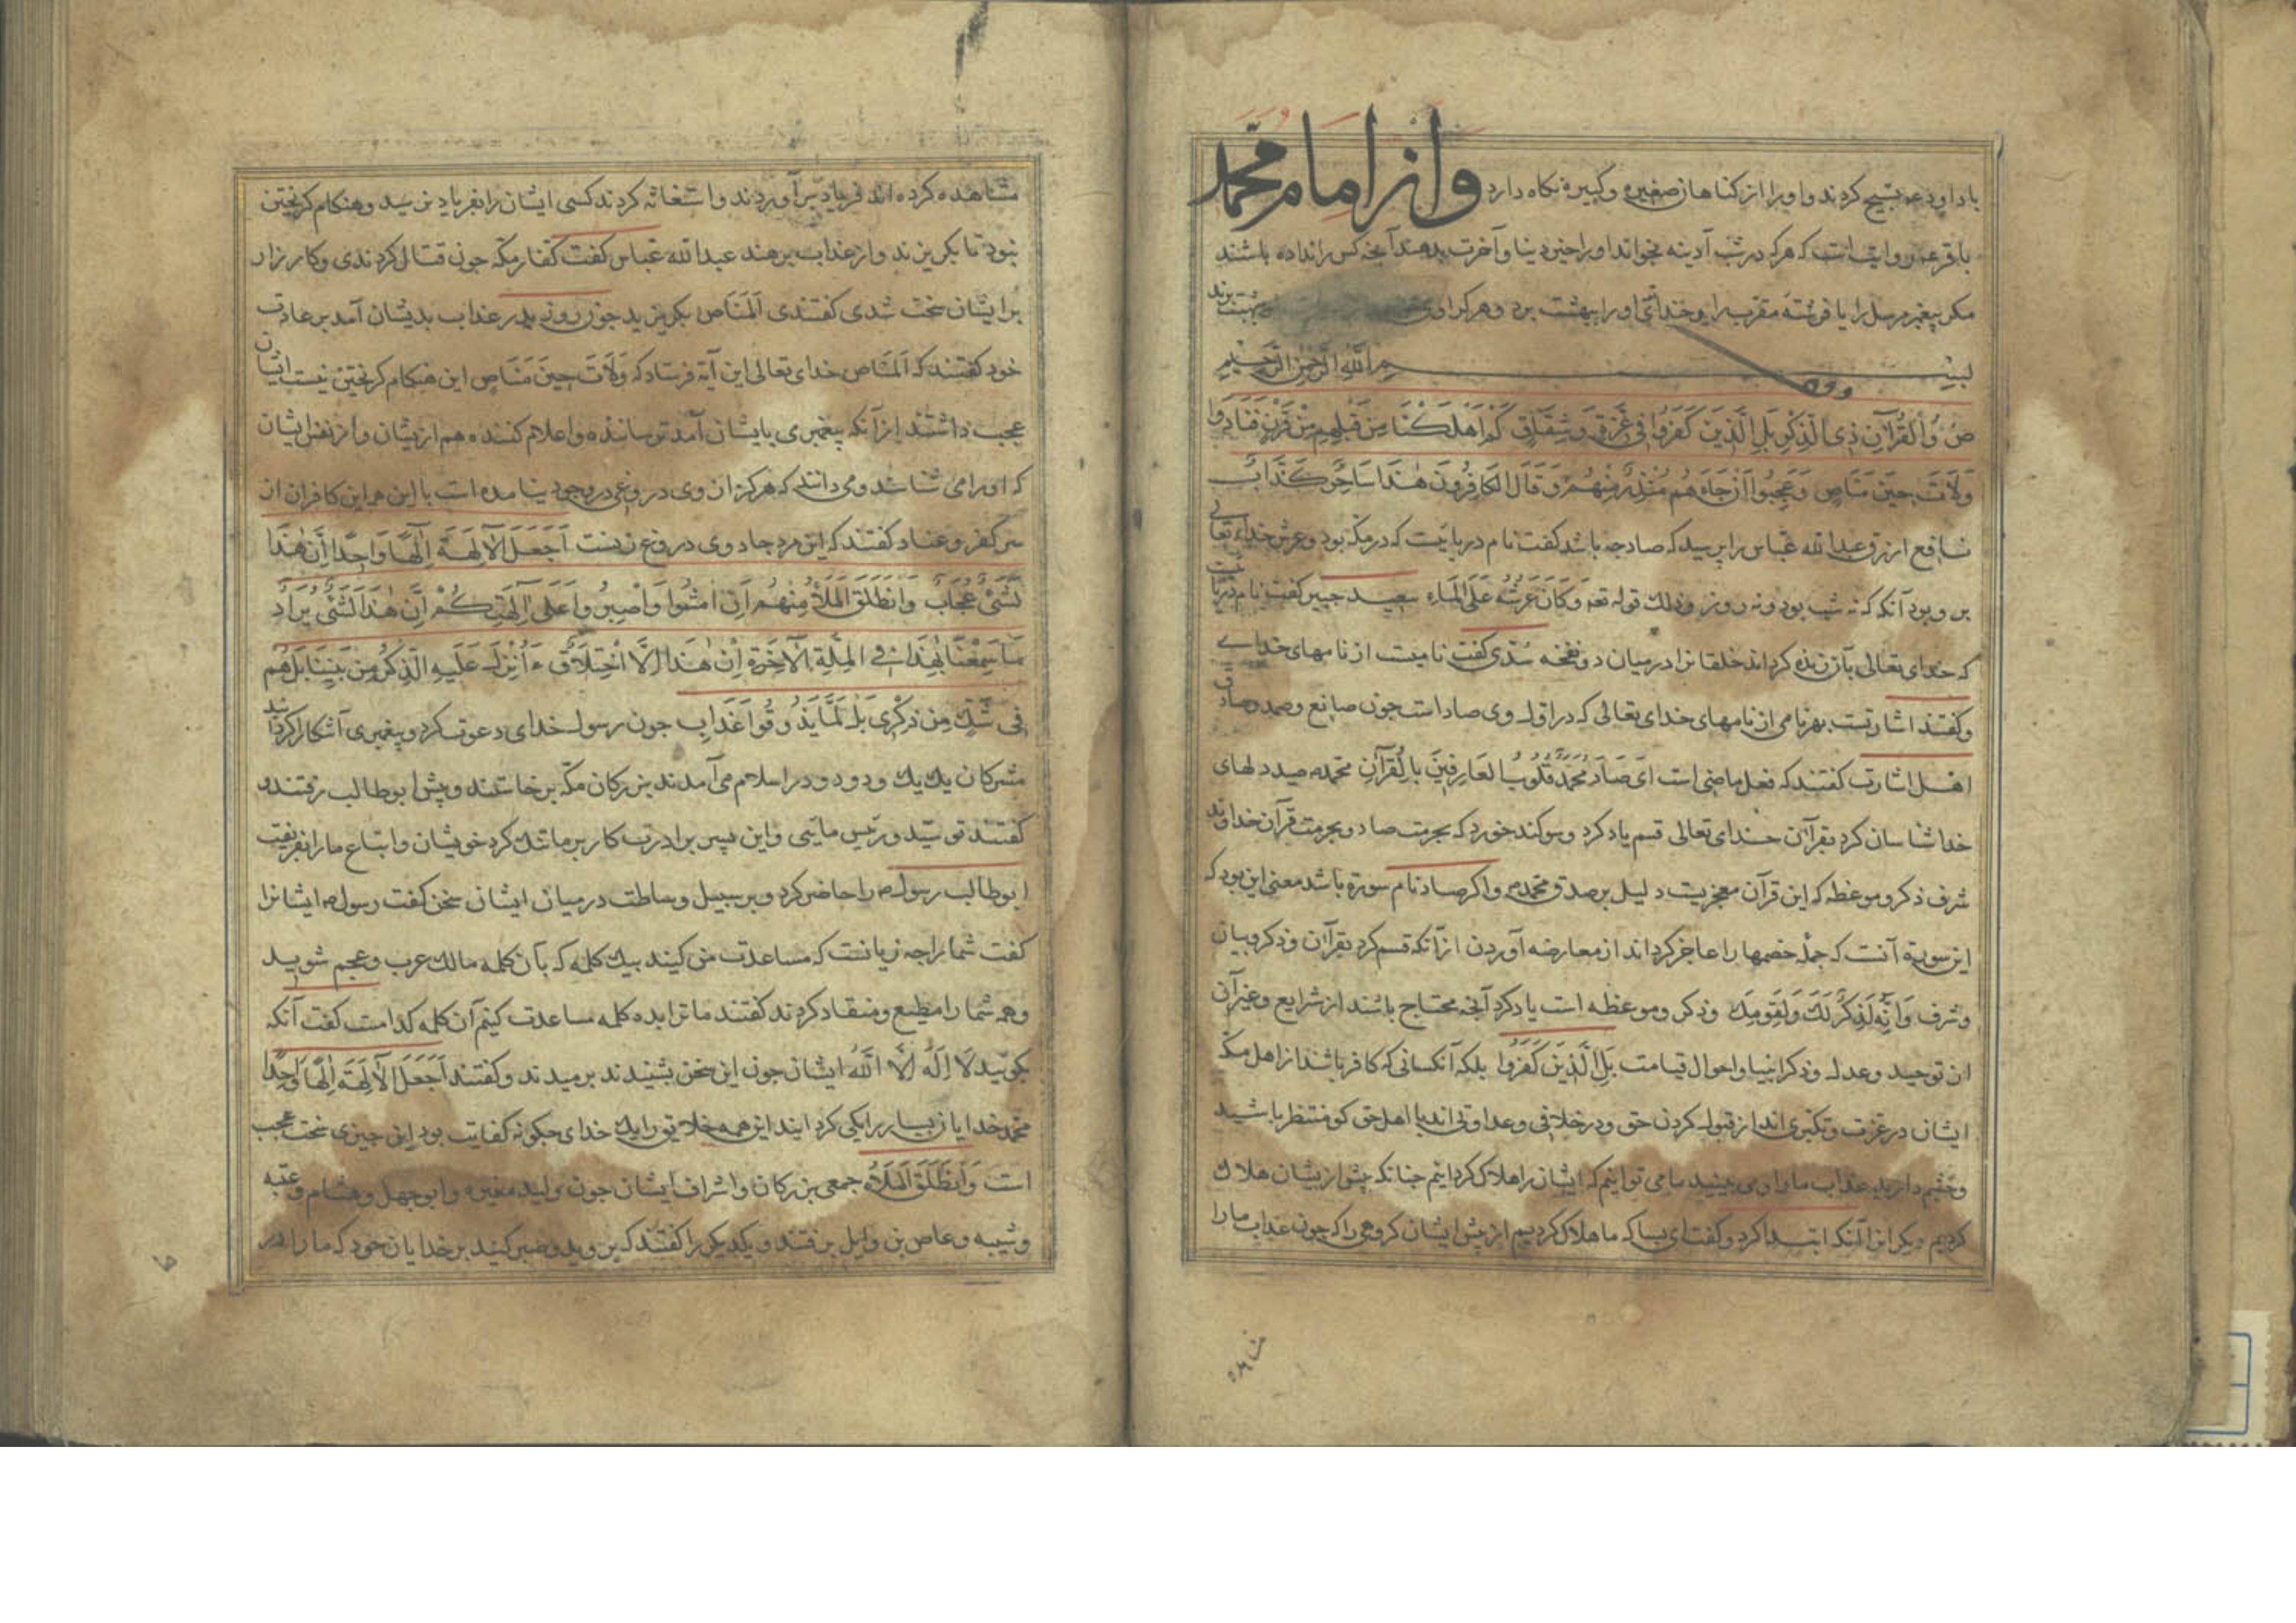 با داود عم تسبیح کردند و او را از کناهان صغیره و کبیره نکاه دارد و از امام محمد
باقر عم روایت است که هرکه در شب آدینه بخواند او را خیر دنیا و آخرت بدهند آنجه کس را نداده باشند
مکر پیغمبر مرسل را یا فرشته مقرب را و خدای او را ببهشت برد و هرکرا وی بهشت برند
بسم الله الرحمن الرحیم
ص وَالْقُرْآنِ ذِی الذِّکْرِ بَلِ الَّذِینَ کَفَرُوا فِی عِزَّةٍ وَشِقَاقٍ کَمْ اَهْلَکْنَا مِنْ قَبْلِهِمْ مِنْ قَرْنٍ فَنَادَوا
وَلَاتَ حِینَ مَنَاصٍ وَعَجِبُوا اَنْ جَاءَهُمْ مُنْذِرٌ مِنْهُمْ وَقَالَ الکَافِرُونَ هٰذَا سَاحِرٌ کَذَّابٌ
نافع ازرق عبدالله عباس را پرسید که صاد جه باشد کفت نام دریاییست که در مکه بود و عرش خدای تعالی
بر و بود آنکه که نه شب بود و نه روز وذلک قوله تعه وَکَانَ عَرْشُهُ عَلَی المَاءِ سعید جبیر کفت نام دریاییست
که خدای تعالی بآن زنده کرداند خلقانرا در میان دو نفخه سدی کفت نامیست از نامهای خدای
و کفتند اشارتست بهر نامی از نامهای خدای تعالی که در اول وی صاد است جون صانع وصمد وصادق
اهل اشارت کفتند که فعل ماضی است ای صَادَ مُحَمَّدٌ قُلُوبَ العَارِفِینَ بِالقُرْآنِ محمد صید دلهای
خدا شناسان کرد بقرآن خدای تعالی قسم یاد کرد و سوکند خورد که بحرمت صاد و بحرمت قرآن خداوند
شرف ذکر و موعظه که این قرآن معجزیست دلیل بر صدق محمد و اکر صاد نام سورة باشد معنی این بود که
این سورة آنست که جمله خصمها را عاجز کرداند از معارضه آوردن ازآنکه قسم کرد بقرآن وذکر و بیان
وشرف وَاِنَّهُ لَذِکْرٌ لَکَ وَلِقَوْمِکَ وذکر و موعظه است یاد کرد آنجه محتاج باشند از شرایع و غیر آن
از توحید وعدل وذکر انبیا و احوال قیامت بَلِ الَّذِینَ کَفَرُوا بلکه آنکسانی که کافر باشند از اهل مکه
ایشان در عزت و تکبری اند از قبول کردن حق و در خلافی و عداوتی اند با اهل حق کو منتظر باشید
و جشم دارید عذاب ما را وی بینید ما می توانیم که ایشان را هلاک کردانیم جنانکه پیش از یشان هلاک
کردیم دیکر ازآنکه ابتدا کرد و کفت ای بسا که ما هلاک کردیم از پیش ایشان کروهی را که جون عذاب ما را
مشاهده کرده اند فریاد برآوردند و استغاثه کردند کسی ایشان را بفریاد نرسید و هنکام کریختن
نبود تا بکریزند و از عذاب برهند عبدالله عباس کفت کفار مکه جون قتال کردندی و کارزار
بر ایشان سخت شدی کفتندی اَلمَنَاص بکریزید جون روز بدر عذاب بدیشان آمد بر عادت
خود کفتند که المناص خدای تعالی این آیة فرستاد که وَلَاتَ حِینَ مَنَاصٍ این هنکام کریختن نیست ایشان
عجب داشتند ازآنکه پیغمبری بایشان آمد ترساننده و اعلام کننده هم از یشان و از نفس ایشان
که او را می شناسند و می دانند که هرکز از وی دروغی در وجود نیامده است با این همه این کافران از
سر کفر و عناد کفتند که این مرد جادوی دروغ زنست اَجَعَلَ الْآلِهَةَ اِلٰهًا وَاحِدًا اِنَّ هٰذَا
لَشَیْءٌ عُجَابٌ وَانْطَلَقَ المَلَأُ مِنْهُمْ اَنِ امْشُوا وَاصْبِرُوا عَلَی آلِهَتِکُمْ اِنَّ هٰذَا لَشَیْءٌ یُرَادُ
مَا سَمِعْنَا بِهٰذَا فِی المِلَّةِ الْآخِرَةِ اِنْ هٰذَا اِلَّا اخْتِلَاقٌ ءَاُنْزِلَ عَلَیْهِ الذِّکْرُ مِنْ بَیْنِنَا بَلْ هُمْ
فِی شَکٍّ مِنْ ذِکْرِی بَلْ لَمَّا یَذُوقُوا عَذَابِ جون رسول خدای دعوت کرد و پیغمبری آشکارا کردانید
مشرکان یک یک و دو دو در اسلام می آمدند بزرکان مکه برخاستند و پیش ابوطالب رفتند و
کفتند تو سید و رئیس مایی و این پسر برادرت کار بر ما تنک کرد خویشان و اتباع ما را بفریفت
ابوطالب رسول را حاضر کرد و بر سبیل وساطت در میان ایشان سخن کفت رسول ایشانرا
کفت شما را جه زیانست که مساعدت من کنید بیک کلمه که بآن کلمه مالک عرب و عجم شوید
و همه شما را مطیع و منقاد کردند کفتند ما ترا بده کلمه مساعدت کنیم آن کلمه کدامست کفت آنکه
بکویید لَا اِلٰهَ اِلَّا اللّٰهُ ایشان جون این سخن بشنیدند برمیدند و کفتند اَجَعَلَ الْآلِهَةَ اِلٰهًا وَاحِدًا
محمد خدایان بسیار را یکی کرد ایند این همه خلایق را یک خدای جکونه کفایت بود این جیزی سخت عجب
است وَانْطَلَقَ المَلَأُ جمعی بزرکان و اشراف ایشان جون ولید مغیره و ابوجهل و هشام و عتبه
و شیبه و عاص بن وایل برفتند و یکدیکر را کفتند که بروید و صبر کنید بر خدایان خود که ما را در